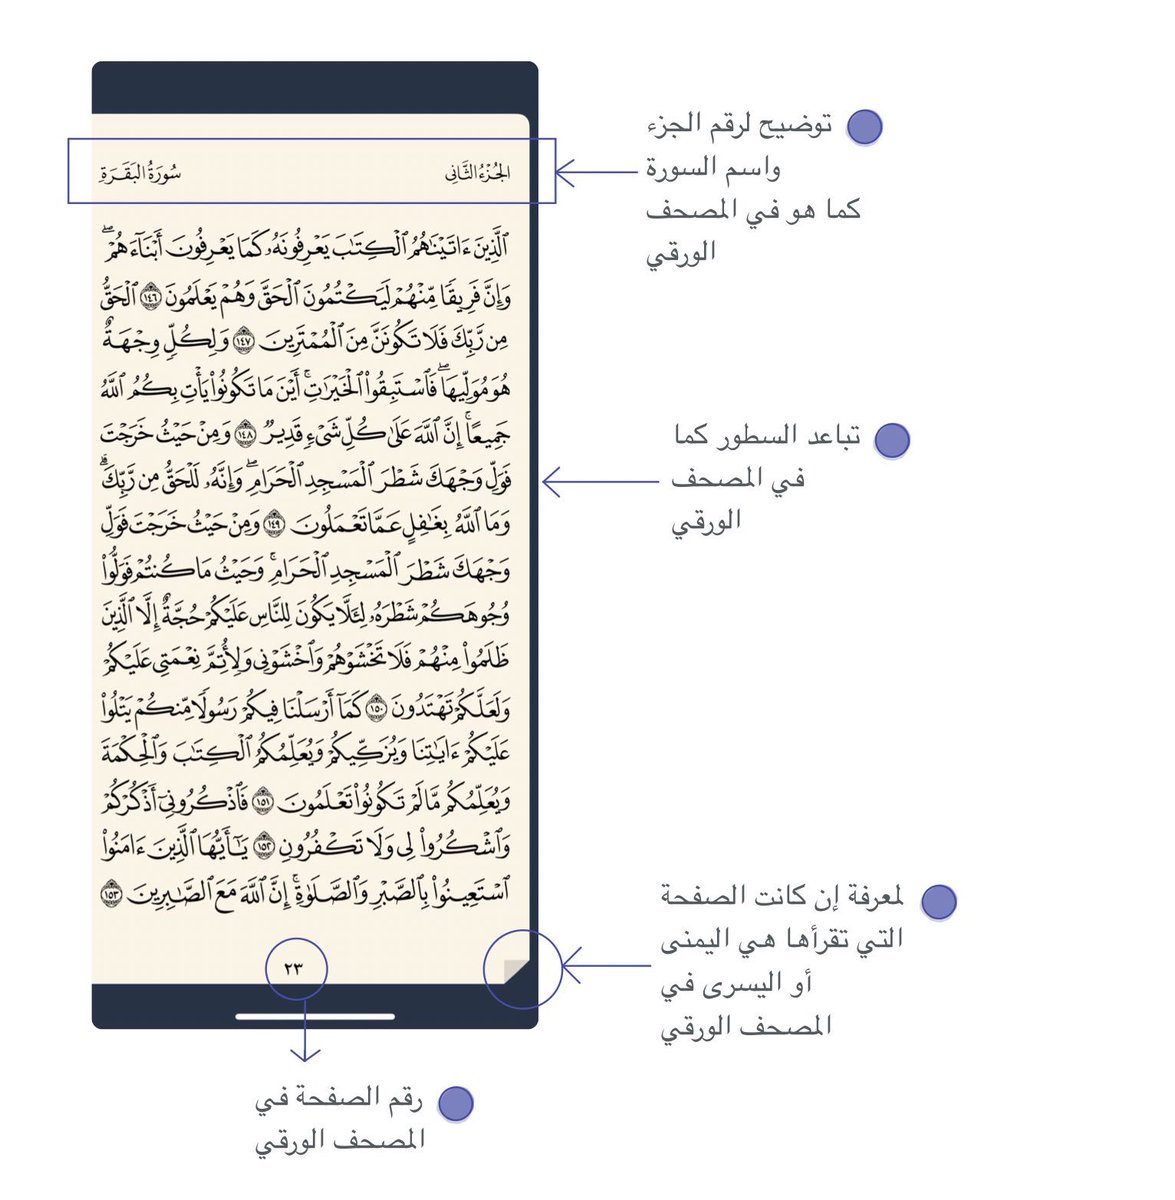 الجُزْءُ الثَّانِي
سُورَةُ البَقَرَةِ
ٱلَّذِينَ ءَاتَيْنَٰهُمُ ٱلْكِتَٰبَ يَعْرِفُونَهُۥ كَمَا يَعْرِفُونَ أَبْنَآءَهُمْۖ
وَإِنَّ فَرِيقًا مِّنْهُمْ لَيَكْتُمُونَ ٱلْحَقَّ وَهُمْ يَعْلَمُونَ ١٤٦ ٱلْحَقُّ
مِن رَّبِّكَ فَلَا تَكُونَنَّ مِنَ ٱلْمُمْتَرِينَ ١٤٧ وَلِكُلٍّ وِجْهَةٌ
هُوَ مُوَلِّيهَاۖ فَٱسْتَبِقُوا۟ ٱلْخَيْرَٰتِۚ أَيْنَ مَا تَكُونُوا۟ يَأْتِ بِكُمُ ٱللَّهُ
جَمِيعًاۚ إِنَّ ٱللَّهَ عَلَىٰ كُلِّ شَىْءٍ قَدِيرٌ ١٤٨ وَمِنْ حَيْثُ خَرَجْتَ
فَوَلِّ وَجْهَكَ شَطْرَ ٱلْمَسْجِدِ ٱلْحَرَامِۖ وَإِنَّهُۥ لَلْحَقُّ مِن رَّبِّكَۗ
وَمَا ٱللَّهُ بِغَٰفِلٍ عَمَّا تَعْمَلُونَ ١٤٩ وَمِنْ حَيْثُ خَرَجْتَ فَوَلِّ
وَجْهَكَ شَطْرَ ٱلْمَسْجِدِ ٱلْحَرَامِۚ وَحَيْثُ مَا كُنتُمْ فَوَلُّوا۟
وُجُوهَكُمْ شَطْرَهُۥ لِئَلَّا يَكُونَ لِلنَّاسِ عَلَيْكُمْ حُجَّةٌ إِلَّا ٱلَّذِينَ
ظَلَمُوا۟ مِنْهُمْ فَلَا تَخْشَوْهُمْ وَٱخْشَوْنِى وَلِأُتِمَّ نِعْمَتِى عَلَيْكُمْ
وَلَعَلَّكُمْ تَهْتَدُونَ ١٥٠ كَمَآ أَرْسَلْنَا فِيكُمْ رَسُولًا مِّنكُمْ يَتْلُوا۟
عَلَيْكُمْ ءَايَٰتِنَا وَيُزَكِّيكُمْ وَيُعَلِّمُكُمُ ٱلْكِتَٰبَ وَٱلْحِكْمَةَ
وَيُعَلِّمُكُم مَّا لَمْ تَكُونُوا۟ تَعْلَمُونَ ١٥١ فَٱذْكُرُونِىٓ أَذْكُرْكُمْ
وَٱشْكُرُوا۟ لِى وَلَا تَكْفُرُونِ ١٥٢ يَٰٓأَيُّهَا ٱلَّذِينَ ءَامَنُوا۟
ٱسْتَعِينُوا۟ بِٱلصَّبْرِ وَٱلصَّلَوٰةِۚ إِنَّ ٱللَّهَ مَعَ ٱلصَّٰبِرِينَ ١٥٣
٢٣
توضيح لرقم الجزء
واسم السورة
كما هو في المصحف
الورقي
تباعد السطور كما
في المصحف
الورقي
لمعرفة إن كانت الصفحة
التي تقرأها هي اليمنى
أو اليسرى في
المصحف الورقي
رقم الصفحة في
المصحف الورقي